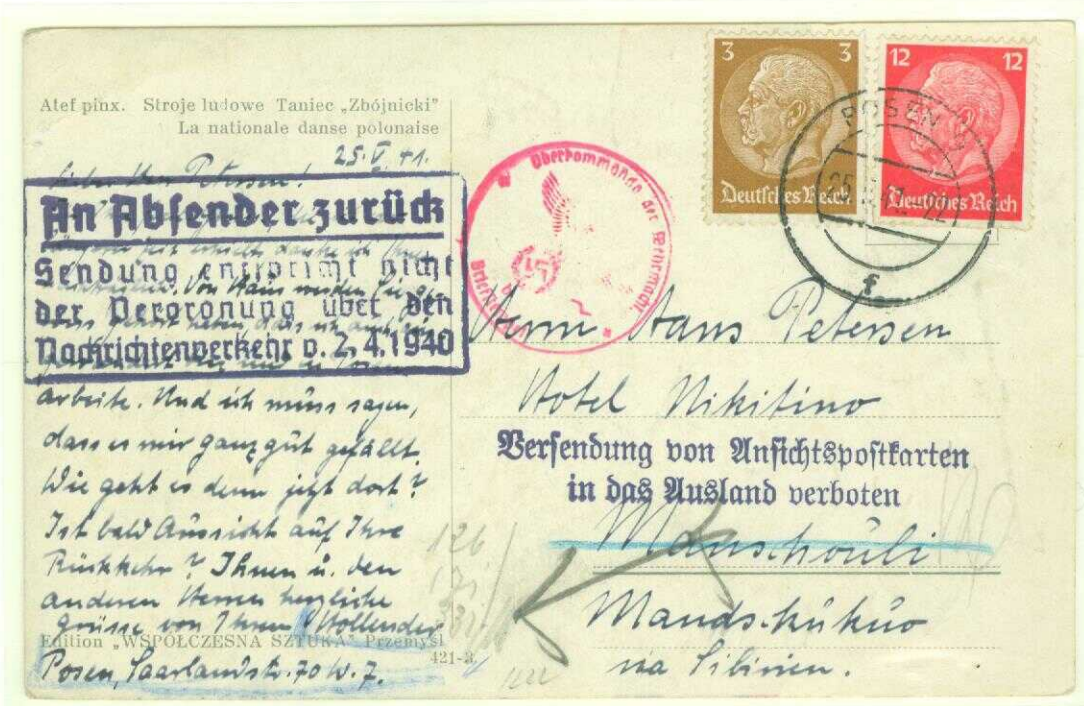 Atef pinx. Stroje ludowe Taniec „Zbójnicki”
La nationale danse polonaise
25.V.41.
Lieber Herr Petersen!
An Absender zurück
Sendung entspricht nicht
der Verordnung über den
Nachrichtenverkehr v. 2.4.1940
arbeite. Und ich muss sagen,
dass es mir ganz gut gefällt.
Wie geht es denn jetzt dort?
Ist bald Aussicht auf Ihre
Rückkehr? Ihnen u. den
anderen Herren herzliche
Grüsse von Ihrem Hollender
Edition „WSPÓŁCZESNA SZTUKA” Przemyśl
421-3
Posen, Saarlandstr. 70 W. 7.
3 3
Deutsches Reich
12 12
Deutsches Reich
POSEN
f
Oberkommando der Wehrmacht
Herrn Hans Petersen
Hotel Nikitino
Versendung von Ansichtspostkarten
in das Ausland verboten
Manschouli
Mandschukuo
via Sibirien.